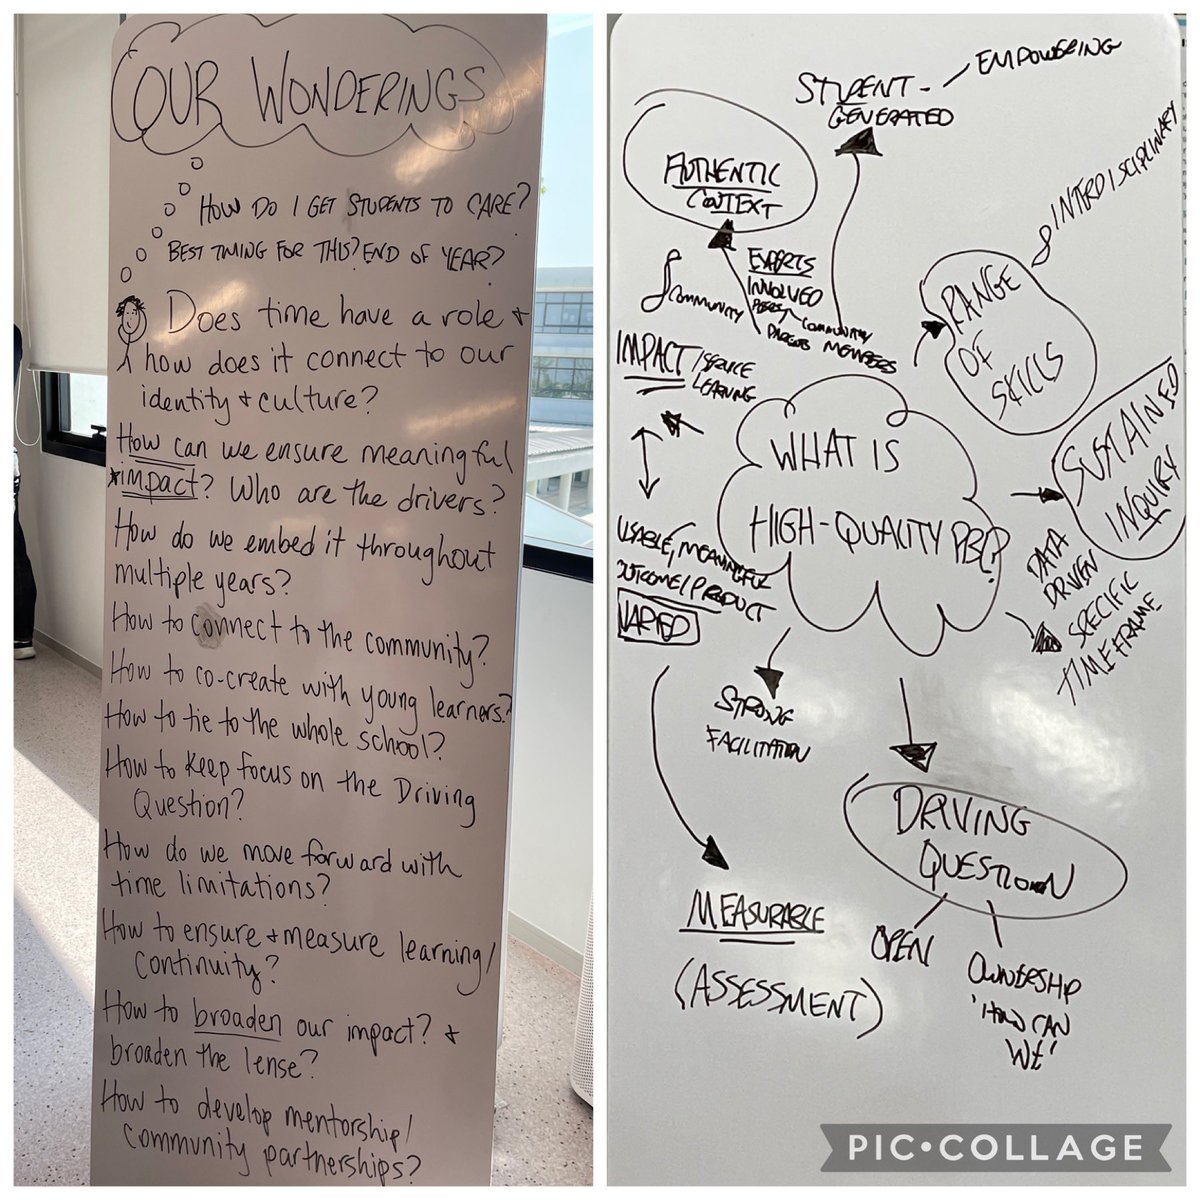 OUR WONDERINGS
HOW DO I GET STUDENTS TO CARE?
BEST TIMING FOR THIS? END OF YEAR?
Does time have a role +
how does it connect to our
identity + culture?
How can we ensure meaningful
*impact? Who are the drivers?
How do we embed it throughout
multiple years?
How to connect to the community?
How to co-create with young learners?
How to tie to the whole school?
How to keep focus on the Driving
Question?
How do we move forward with
time limitations?
How to ensure + measure learning/
Continuity?
How to broaden our impact? +
broaden the lense?
How to develop mentorship/
Community partnerships?
STUDENT-
GENERATED
EMPOWERING
AUTHENTIC
CONTEXT
INTERDISCIPLINARY
EXPERTS
INVOLVED
COMMUNITY
PARENTS
COMMUNITY
MEMBERS
RANGE
OF
SKILLS
IMPACT/SERVICE
LEARNING
SUSTAINED
INQUIRY
WHAT IS
HIGH-QUALITY PBL?
USABLE, MEANINGFUL
OUTCOME/PRODUCT
VARIED
DATA
DRIVEN
SPECIFIC
TIMEFRAME
STRONG
FACILITATION
DRIVING
QUESTION
MEASURABLE
(ASSESSMENT)
OPEN
OWNERSHIP
'HOW CAN
WE'
PIC•COLLAGE